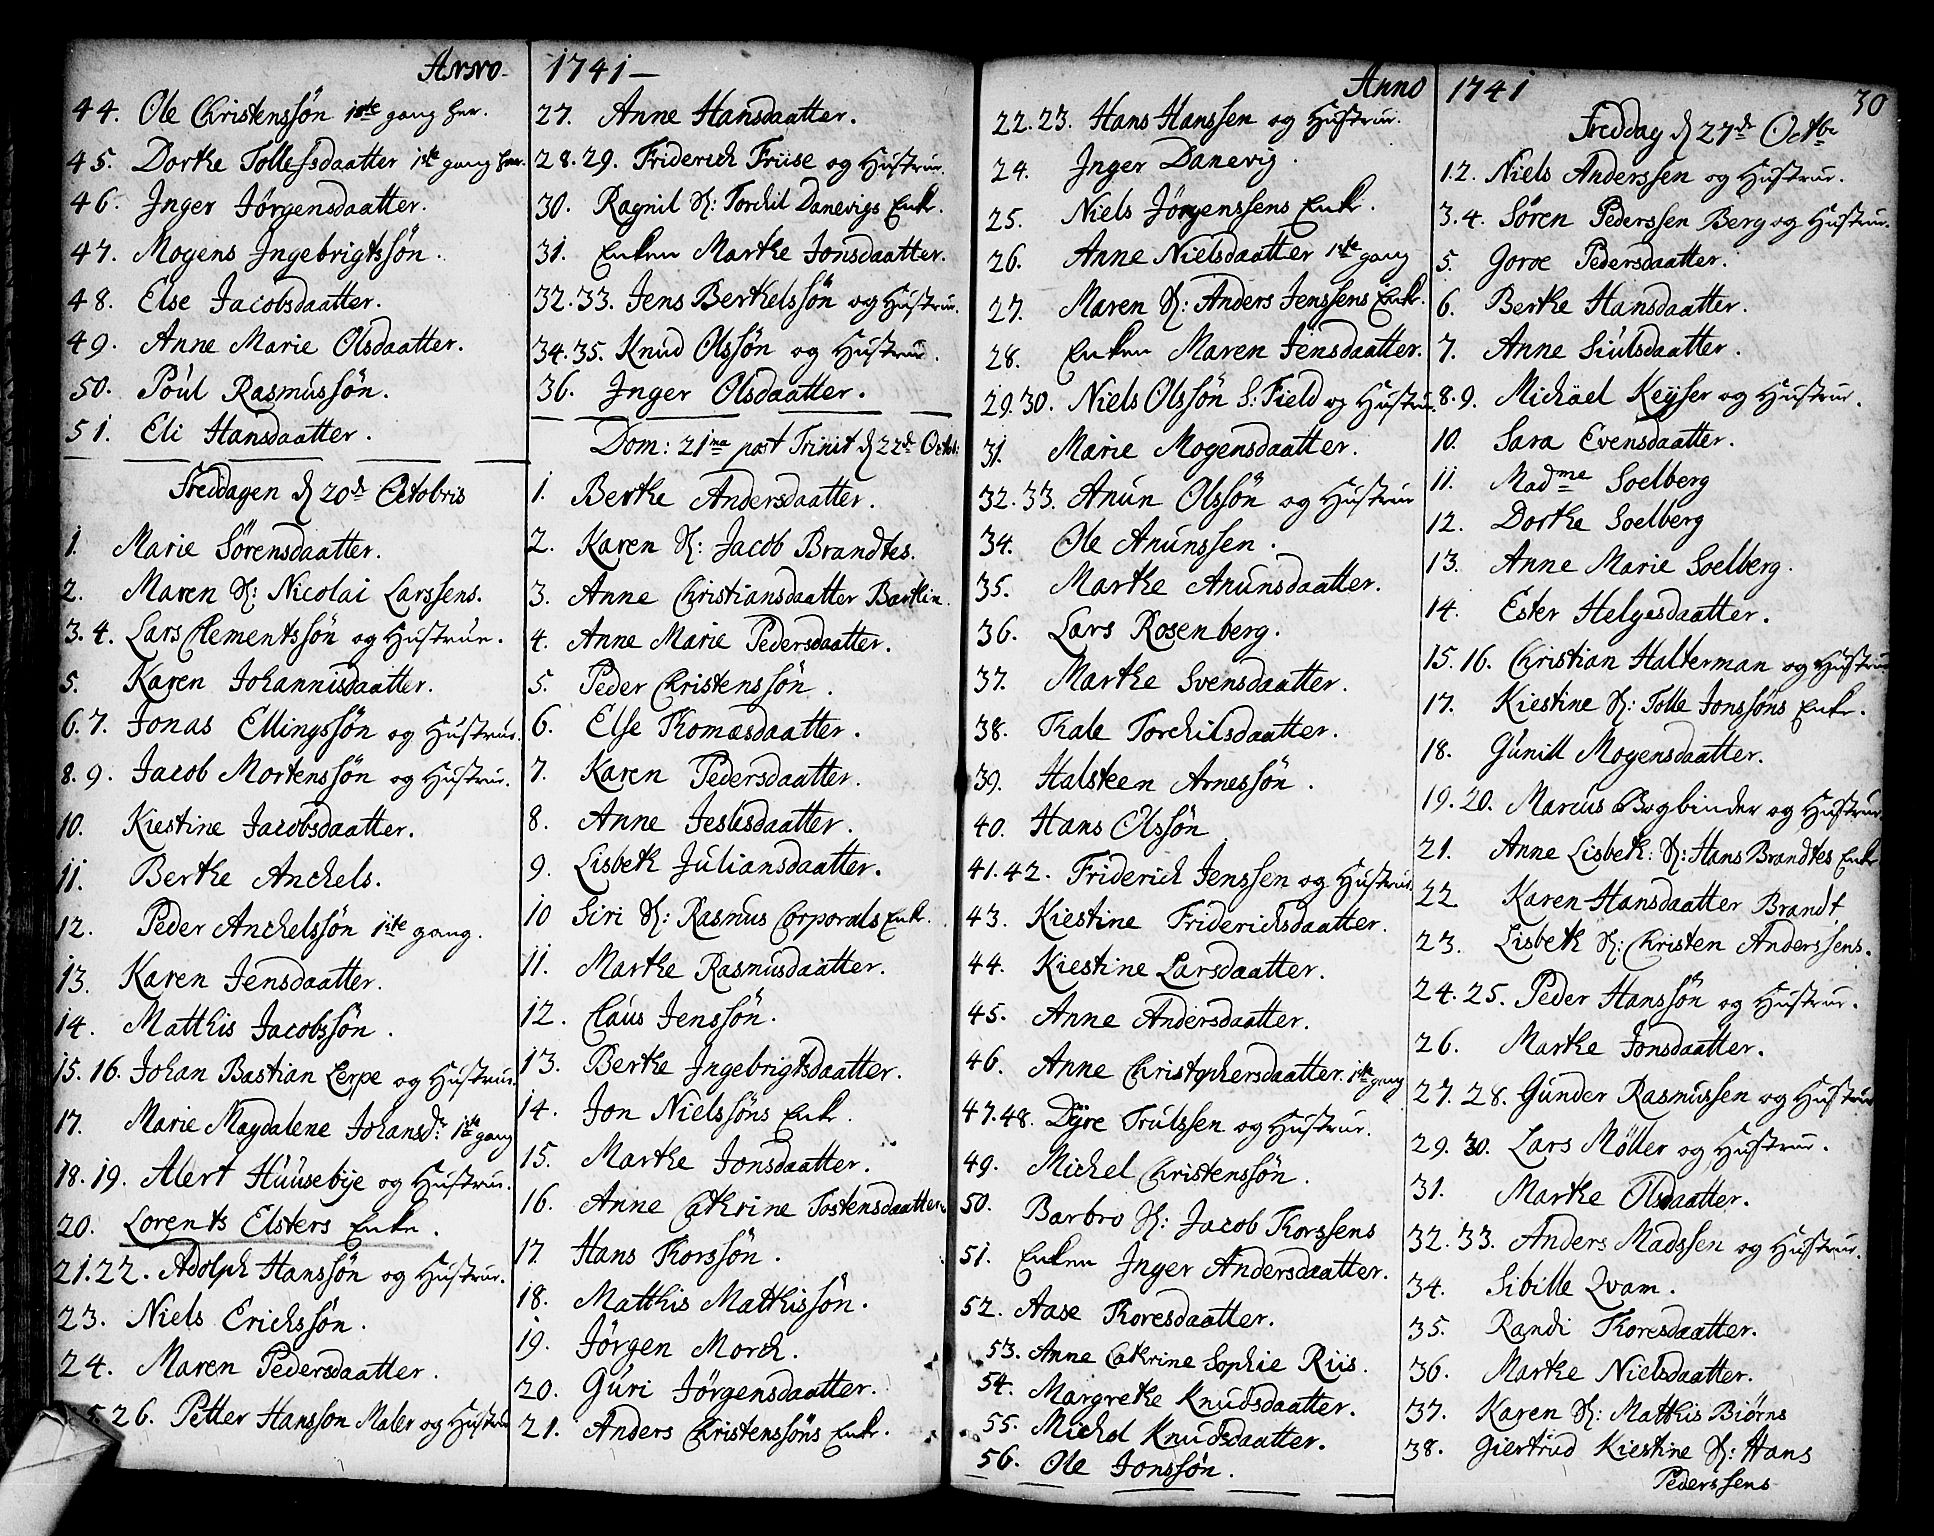 Anno
44. Ole Christenssøn 1ste gang her.
45. Dorthe Tollefsdaatter 1ste gang her.
46. Inger Jørgensdaatter.
47. Mogens Ingebrigtssøn.
48. Else Jacobsdaatter.
49. Anne Marie Olsdaatter.
50. Poul Rasmussøn.
51. Eli Hansdaatter.
Freddagen d 20de Octobris
1. Marie Sørensdaatter.
2. Maren S: Nicolai Larssens.
3. 4. Lars Clementssøn og Hustrur.
5. Karen Johannisdaatter.
6. 7. Jonas Ellingssøn og Hustrur.
8. 9. Jacob Mortenssøn og Hustrur.
10. Kiestine Jacobsdaatter.
11. Berthe Anchels.
12. Peder Anchelssøn 1ste gang.
13. Karen Jensdaatter.
14. Matthis Jacobssøn.
15. 16. Johan Bastian Lerpe og Hustrur.
17. Marie Magdalene Johansdr 1ste gang
18. 19. Alert Huusebye og Hustrur.
20. Lorents Elsters Enke.
21. 22. Adolph Hanssøn og Hustrur.
23. Niels Erichssøn.
24. Maren Pedersdaatter.
26. Petter Hansson Maler og Hustrur
1741
27. Anne Hansdaatter.
28. 29. Friderich Friise og Hustrur.
30. Ragnil S: Torchil Danevigs Enke.
31. Enken Marthe Jonsdaatter.
32. 33. Jens Berthelssøn og Hustrur.
34. 35. Knud Olssøn og Hustrur.
36. Inger Olsdaatter.
Dom: 21ma post Trinit d 22de Octob:
1. Berthe Andersdaatter.
2. Karen S: Jacob Brandtes.
3. Anne Christiansdaatter Barthin
4. Anne Marie Pedersdaatter.
5. Peder Christenssøn.
6. Else Thomæsdaatter.
7. Karen Pedersdaatter.
8. Anne Jeslesdaatter.
9. Lisbeth Juliansdaatter.
10 Siri S: Rasmus Corporals Enke.
11. Marthe Rasmusdaatter.
12. Claus Jenssøn.
13. Berthe Ingebrigtsdaatter.
14. Jon Nielssøns Enke.
15. Marthe Jonsdaatter.
16. Anne Cathrine Tostensdaatter.
17 Hans Thorssøn.
18. Matthis Matthissøn.
19. Jørgen Morch.
20. Guri Jørgensdaatter.
21. Anders Christenssøns Enke.
Anno
22. 23. Hans Hanssen og Hustrur.
24. Inger Danevig.
25. Niels Jørgenssens Enke.
26. Anne Nielsdaatter 1ste gang
27. Maren S: Anders Jenssens Enke.
28. Enken Maren Jensdaatter.
29. 30. Niels Olssøn S: Field og Hustrur.
31. Marie Mogensdaatter.
32. 33. Anun Olssøn og Hustrur
34. Ole Anunssen.
35. Marthe Anunsdaatter.
36. Lars Rosenberg.
37. Marthe Svensdaatter.
38. Thale Torchilsdaatter.
39. Halsteen Arnessøn.
40. Hans Olssøn
41. 42. Friderich Jenssen og Hustrur.
43. Kiestine Friderichsdaatter.
44. Kiestine Larsdaatter.
45. Anne Andersdaatter.
46. Anne Christophersdaatter. 1ste gang
47. 48. Dyre Trulssen og Hustrur.
49. Michel Christenssøn.
50. Barbro S: Jacob Thorssens
51. Enken Inger Andersdaatter.
52. Aase Thoresdaatter.
53. Anne Cathrine Sophie Riis.
54. Margrethe Knudsdaatter.
55. Michel Knudsdaatter.
56. Ole Jonssøn.
1741
30
Freddag d 27de Octbr
1 2. Niels Anderssen og Hustrur.
3. 4. Søren Pederssen Berg og Hustrur.
5. Goroe Pedersdaatter.
6. Berthe Hansdaatter.
7. Anne Siulsdaatter.
8. 9. Michäel Keyser og Hustrur.
10. Sara Evensdaatter.
11. Madme Soelberg
12. Dorthe Soelberg
13. Anne Marie Soelberg.
14. Ester Helgesdaatter.
15. 16. Christian Halterman og Hustrur
17. Kiestine S: Tolle Jonssøns Enke.
18. Gunill Mogensdaatter.
19. 20. Marcus Bogbinder og Hustrur
21. Anne Lisbeth: S: Hans Brandtes Enke
22 Karen Hansdaatter Brandt
23. Lisbeth S: Christen Anderssens.
24. 25. Peder Hanssøn og Hustrur.
26. Marthe Jonsdaatter.
27. 28. Gunder Rasmussen og Hustrur
29. 30. Lars Møller og Hustrur.
31. Marthe Olsdaatter.
32. 33. Anders Madssen og Hustrur.
34. Sibille Qvam.
35. Randi Thoresdaatter.
36. Marthe Nielsdaatter.
37. Karen S: Matthis Biørns
38. Giertrud Kiestine S: Hans
Pederssens